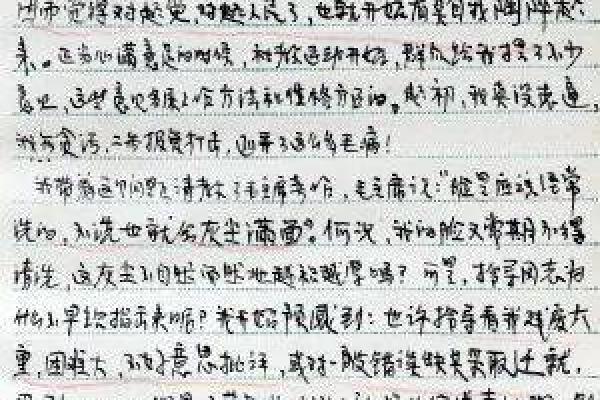 因而觉得对起党,对起人民了,也就开始有点自我陶醉起
来。正当心满意足的时候,和教运动开始,群众给我提了不少
意见,这些意见多属工作方法和性格方面的。起初,我真没想通,
我不贪污,二不报复打击,还弄了这么多毛病!
我带着这个问题请教了毛主席著作,毛主席说:"脸是应该经常
洗的,不洗也就会灰尘满面"。何况,我的脸又常期不得
清洗,这灰尘不自然而然地越积越厚吗?可是,指导同志为
什么不早些指示来呢?我开始预感到:也许指导看我难度大
重,困难大,不好意思批评,或对一般错误缺点采取迁就,